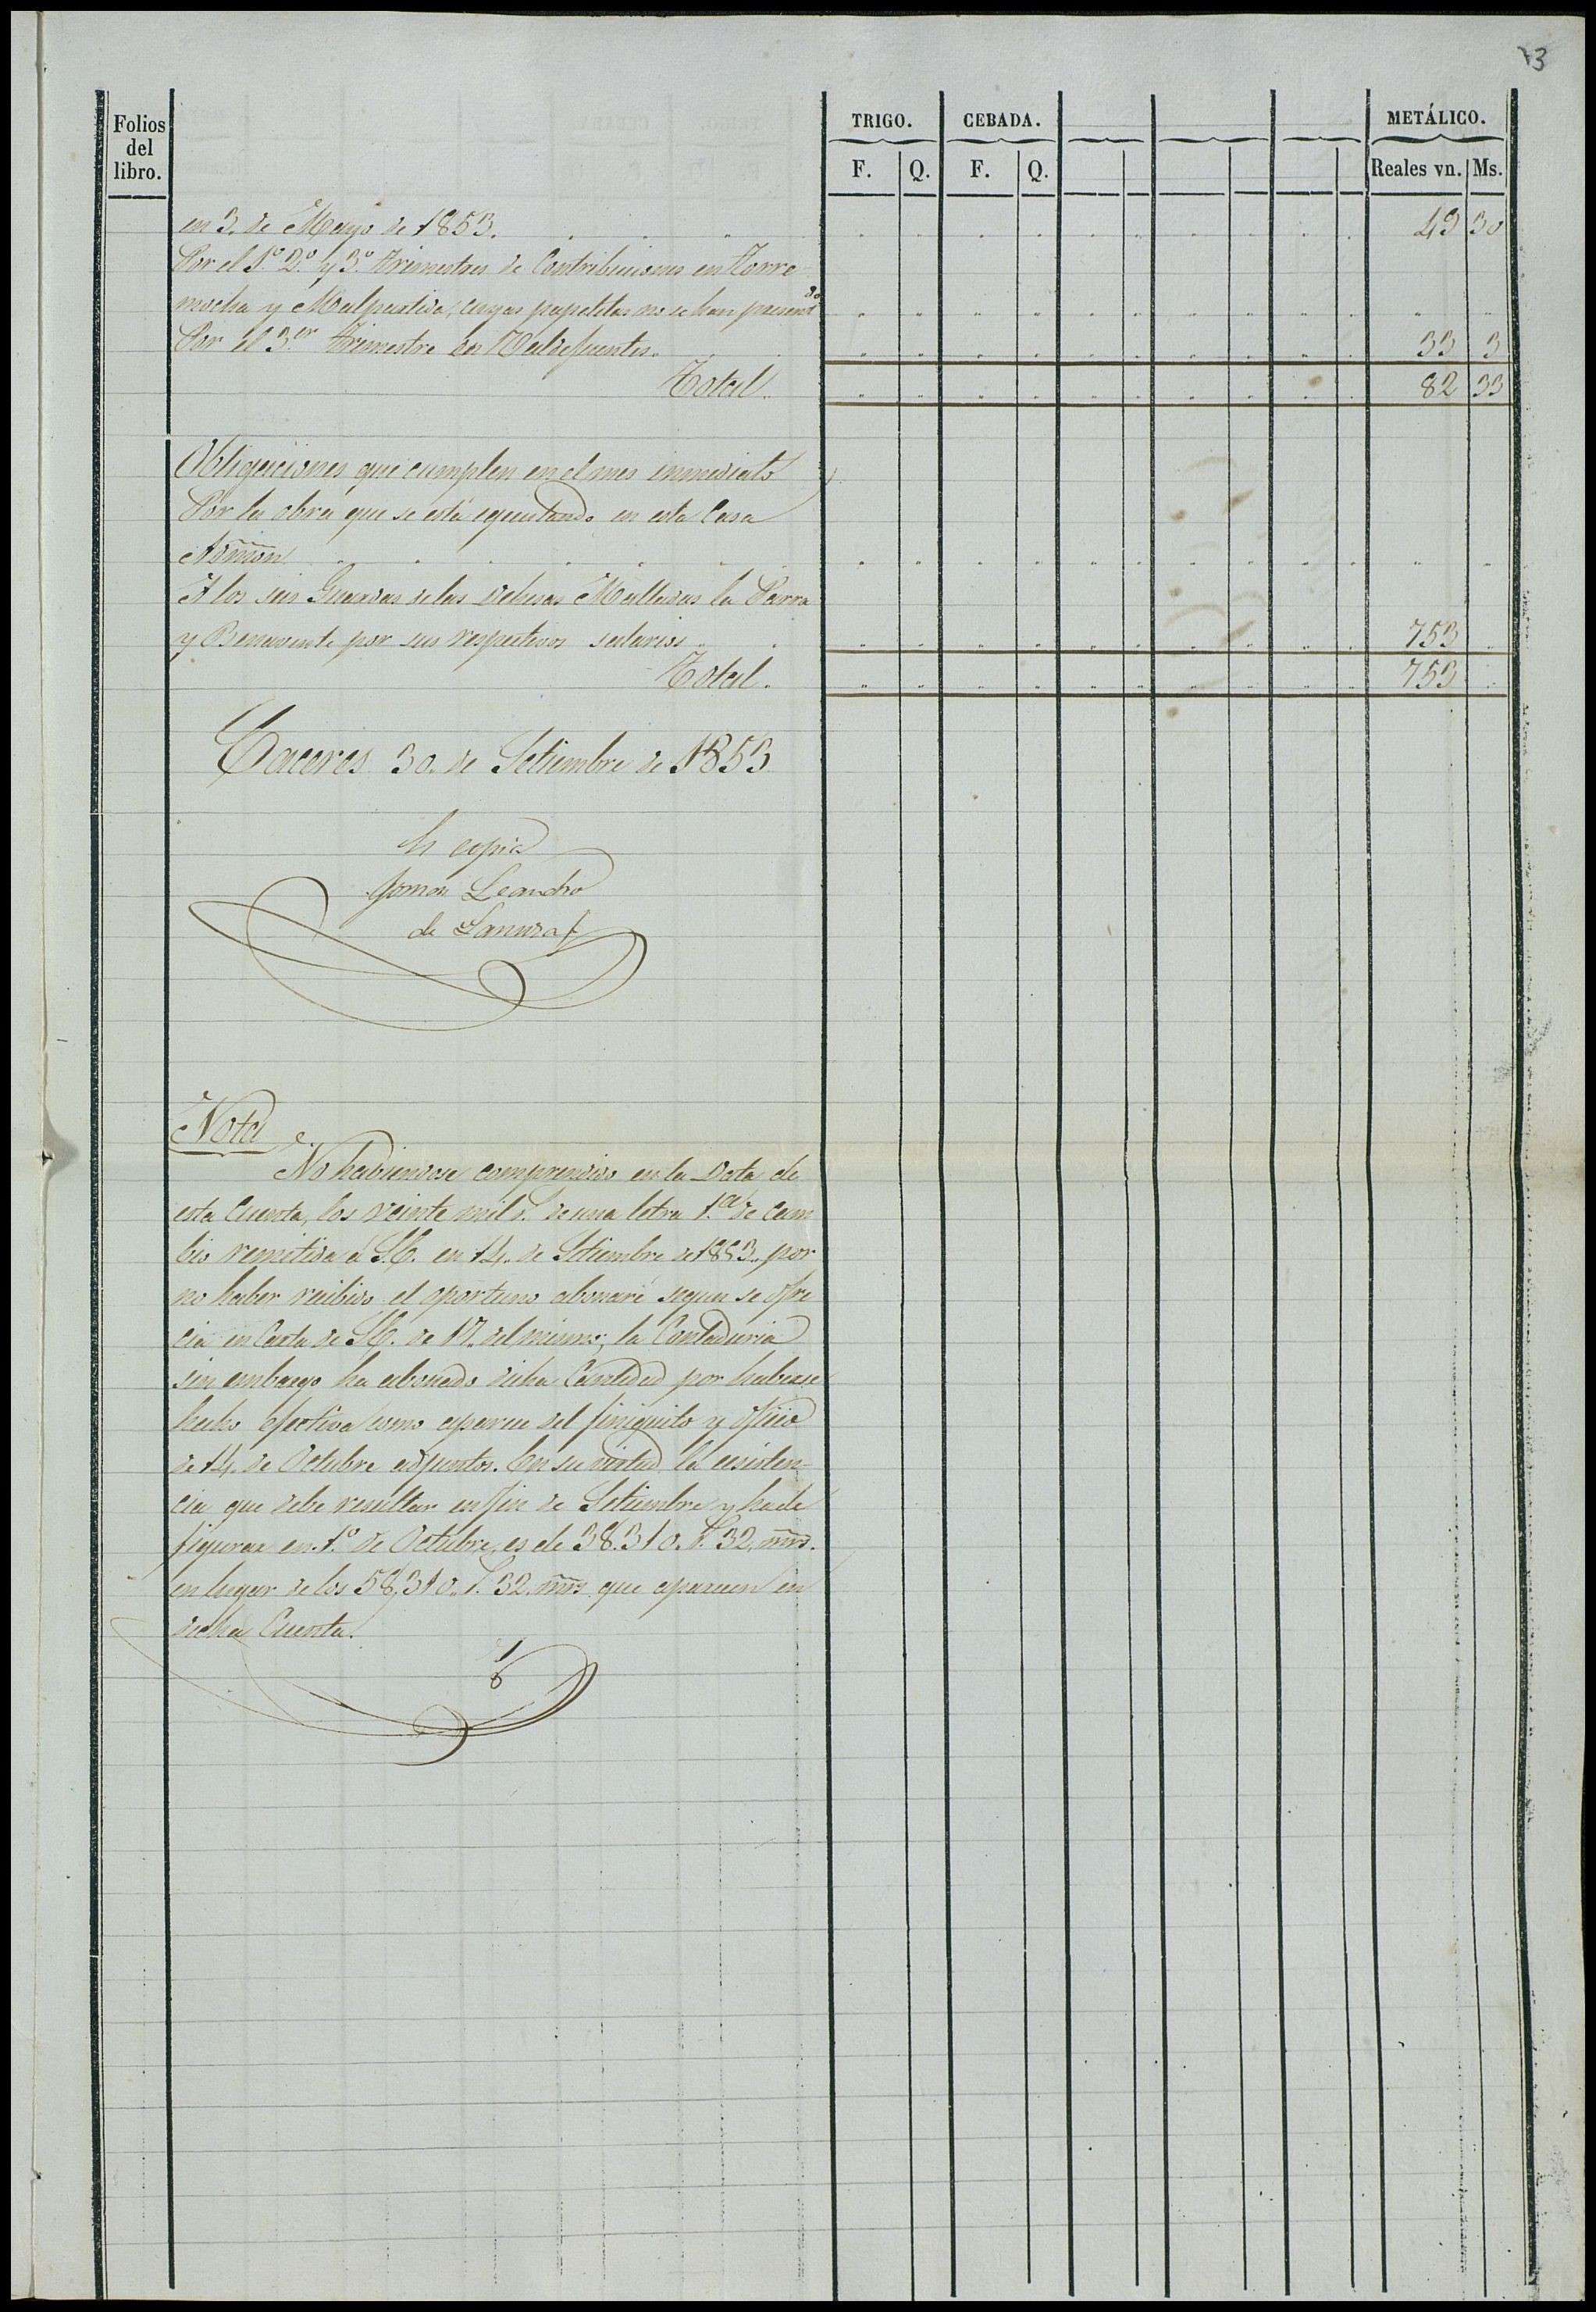 73
Folios del libro.
TRIGO. CEBADA. METÁLICO.
F. Q. F. Q. Reales vn. Ms.
en 3. de Mayo de 1853. 49 30
Por el 1.º 2.º y 3.º trimestres de Contribuciones en Torre
mocha y Malpartida, cuyas papeletas no se han presentdo
Por el 3.er trimestre en Valdefuentes. 33 3
Total. 82 33
Obligaciones que cumplen en el mes inmediato
Por la obra que se está ejecutando en esta Casa
Admon
A los seis Guardas de las dehesas Malladas la Parra
y Benavente por sus respectivos salarios 753
Total. 753
Caceres 30. de Setiembre de 1853
Es copia
Leandro
de
Nota
No habiendose comprendido en la Data de
esta Cuenta, los veinte mil r. de una letra 1.ª de cam
bio remitida á S.E. en 14. de Setiembre de 1853. por
no haber recibido el oportuno abonaré segun se ofre
cia en Carta de S.E. de 17. del mismo; la Contaduria
sin embargo ha abonado dicha Cantidad por haberse
hecho efectiva como aparece del finiquito y oficio
de 14. de Octubre adjuntos. En su virtud la existen-
cia que debe resultar en fin de Setiembre y ha de
figurar en 1.º de Octubre, es de 38.310. r. 32. mrs.
en lugar de los 58,310. r. 32. mrs que aparecen en
dicha Cuenta.